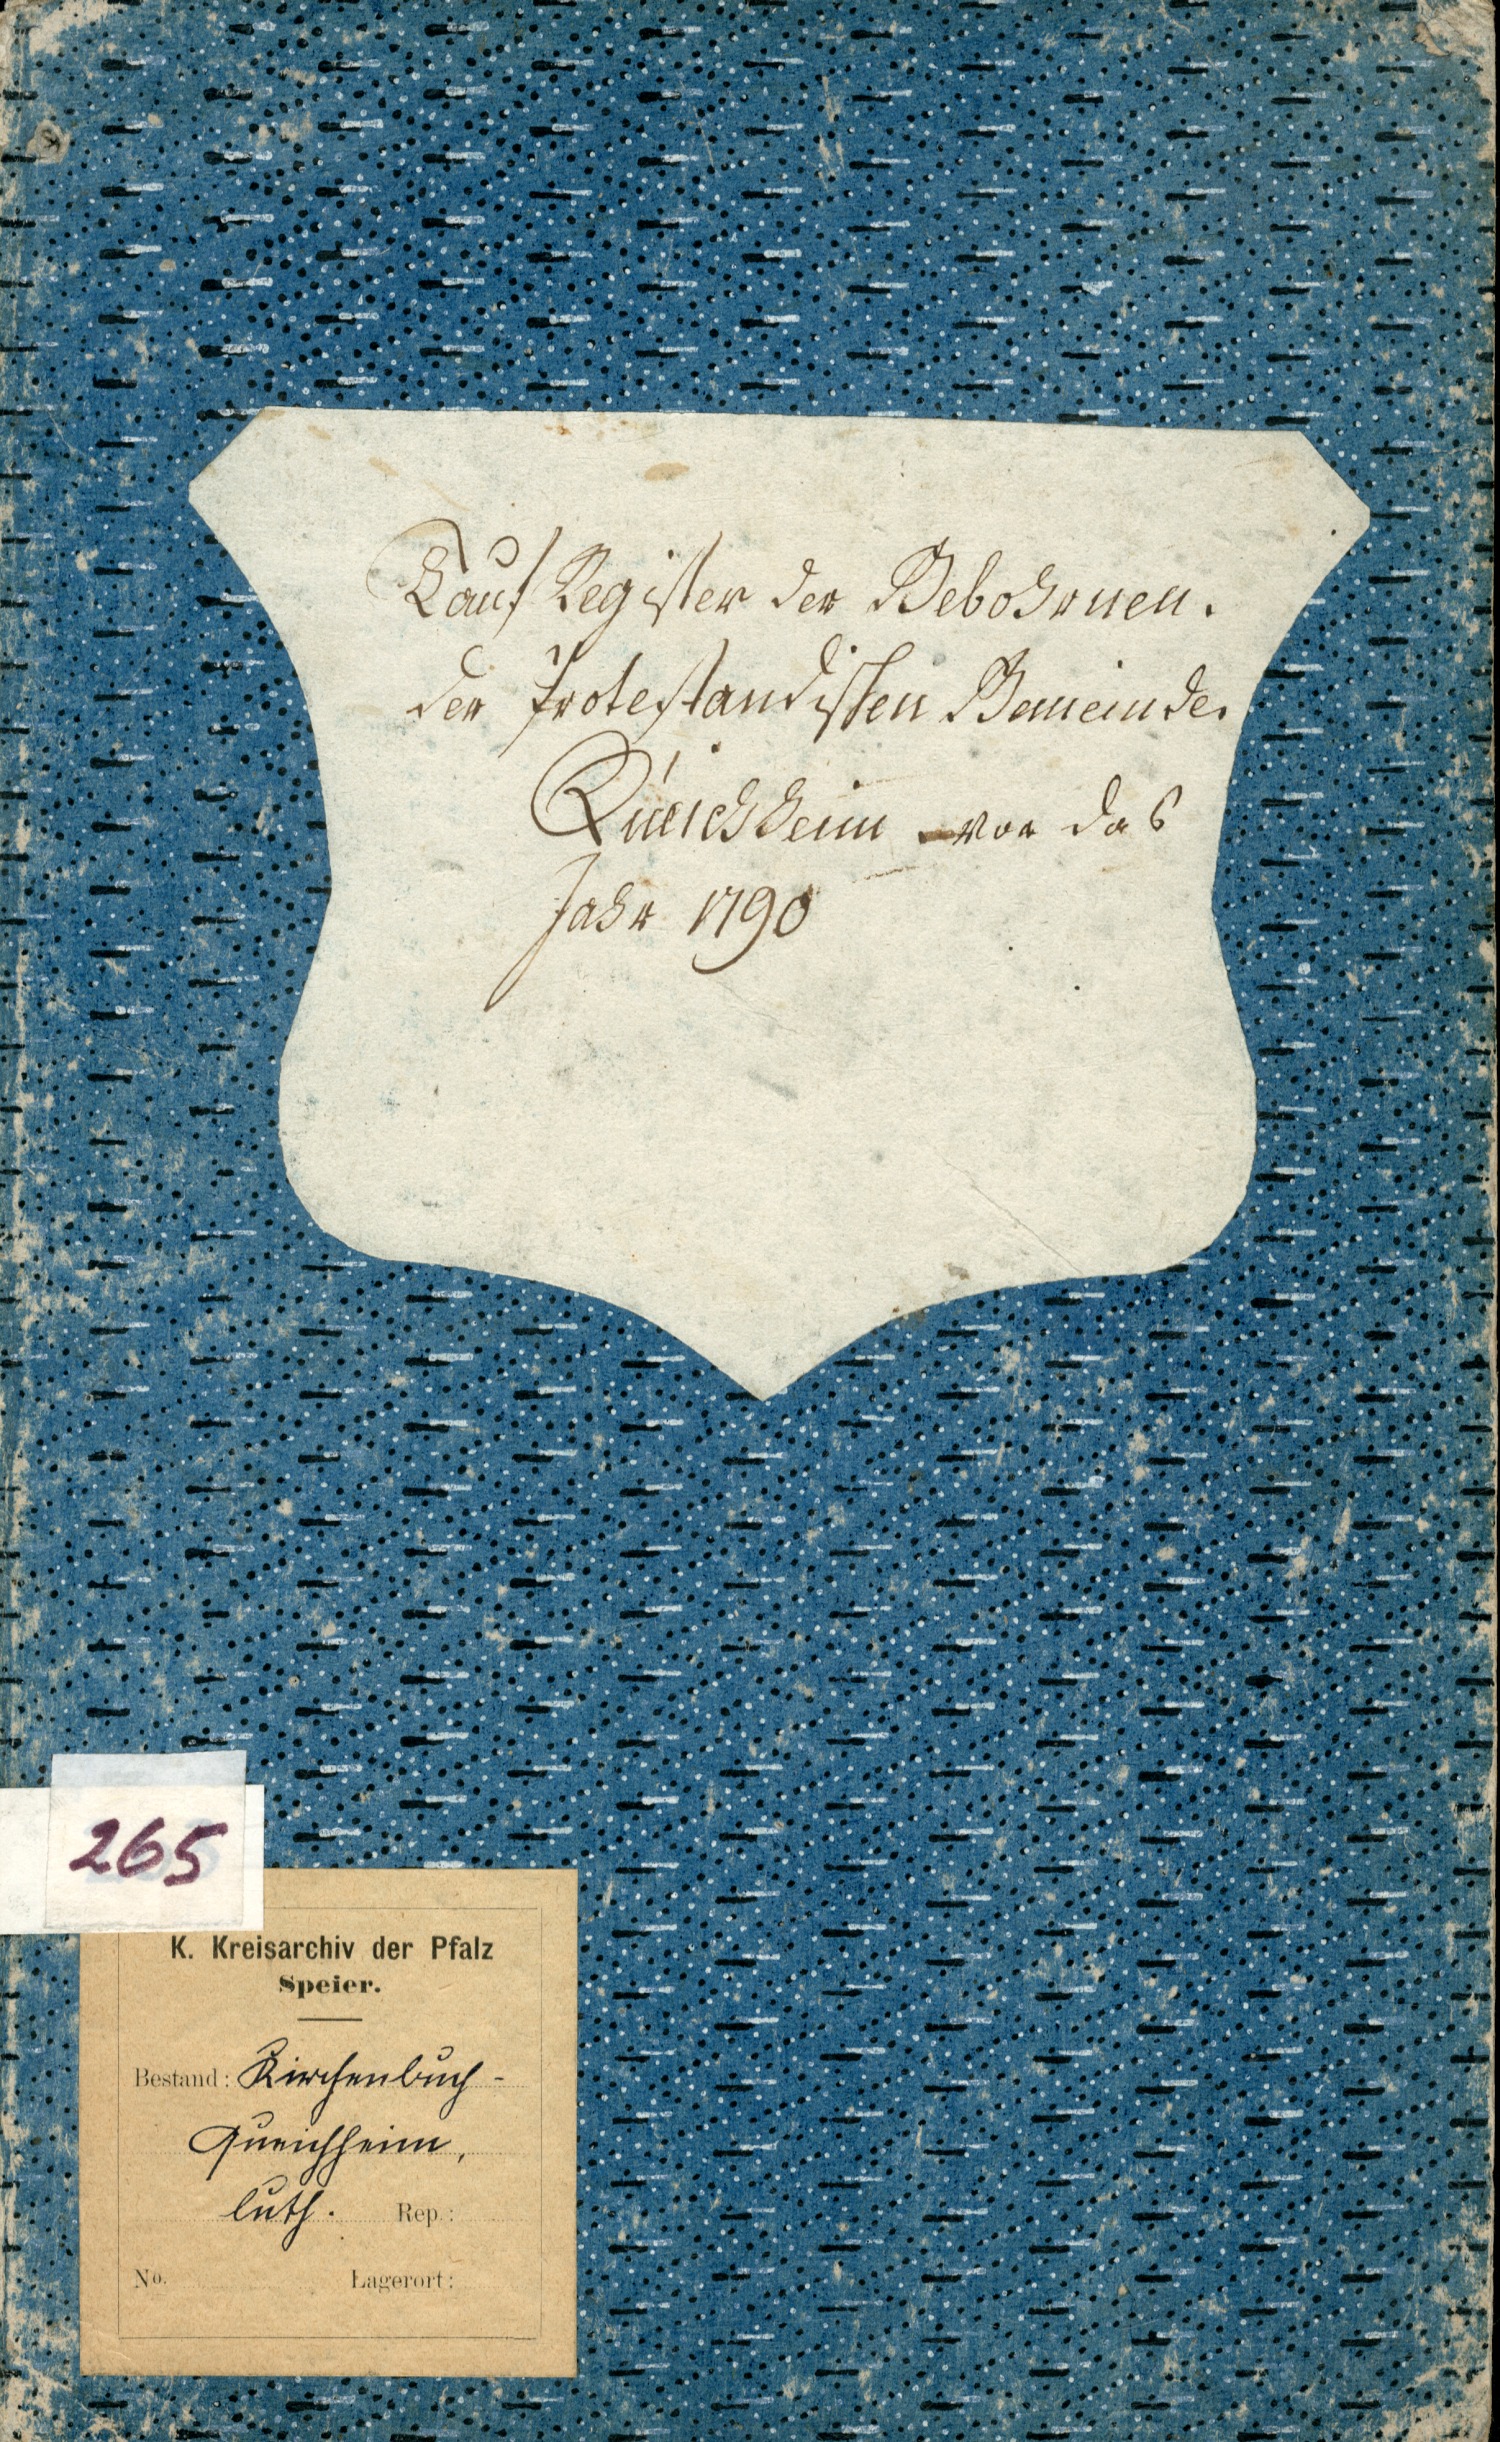 Tauf Register der Gebohrnen.
der Protestandisten Gemeinde.
Queichheim vor das
Jahr 1790
265
K. Kreisarchiv der Pfalz
Speier.
Bestand: Kirchenbuch -
Queichheim,
luth. Rep.:
No. Lagerort: